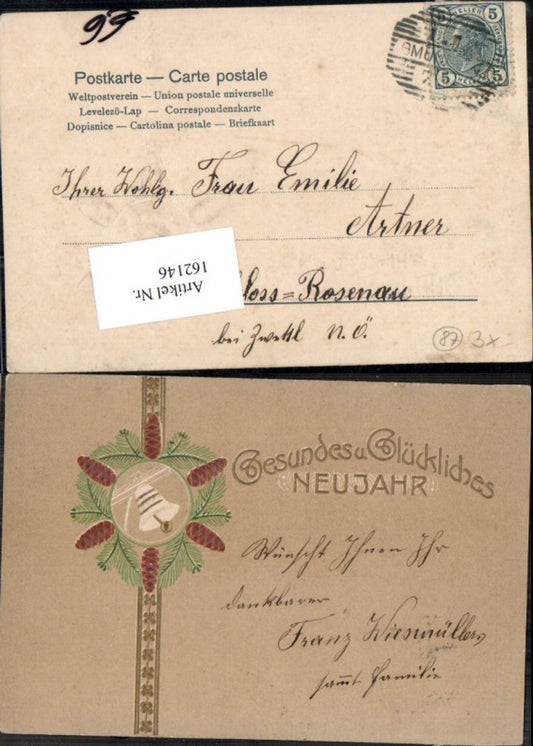 99
5 5
5 5
GMÜ
Postkarte — Carte postale
Weltpostverein — Union postale universelle
Levelezö-Lap — Correspondenzkarte
Dopisnice — Cartolina postale — Briefkaart
Ihrer Wohlg. Frau Emilie
Artner
Artikel Nr.
162146
loss=Rosenau
bei Zwettl N.Ö.
87 3x
Gesundes u. Glückliches
NEUJAHR
Wünscht Ihnen Ihr
dankbarer
Franz Wiesmüller,
sammt Familie